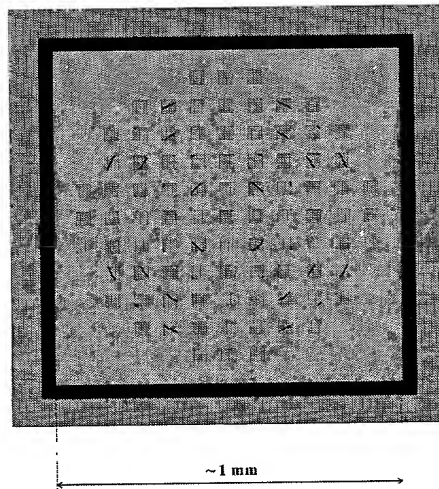 ~1 mm